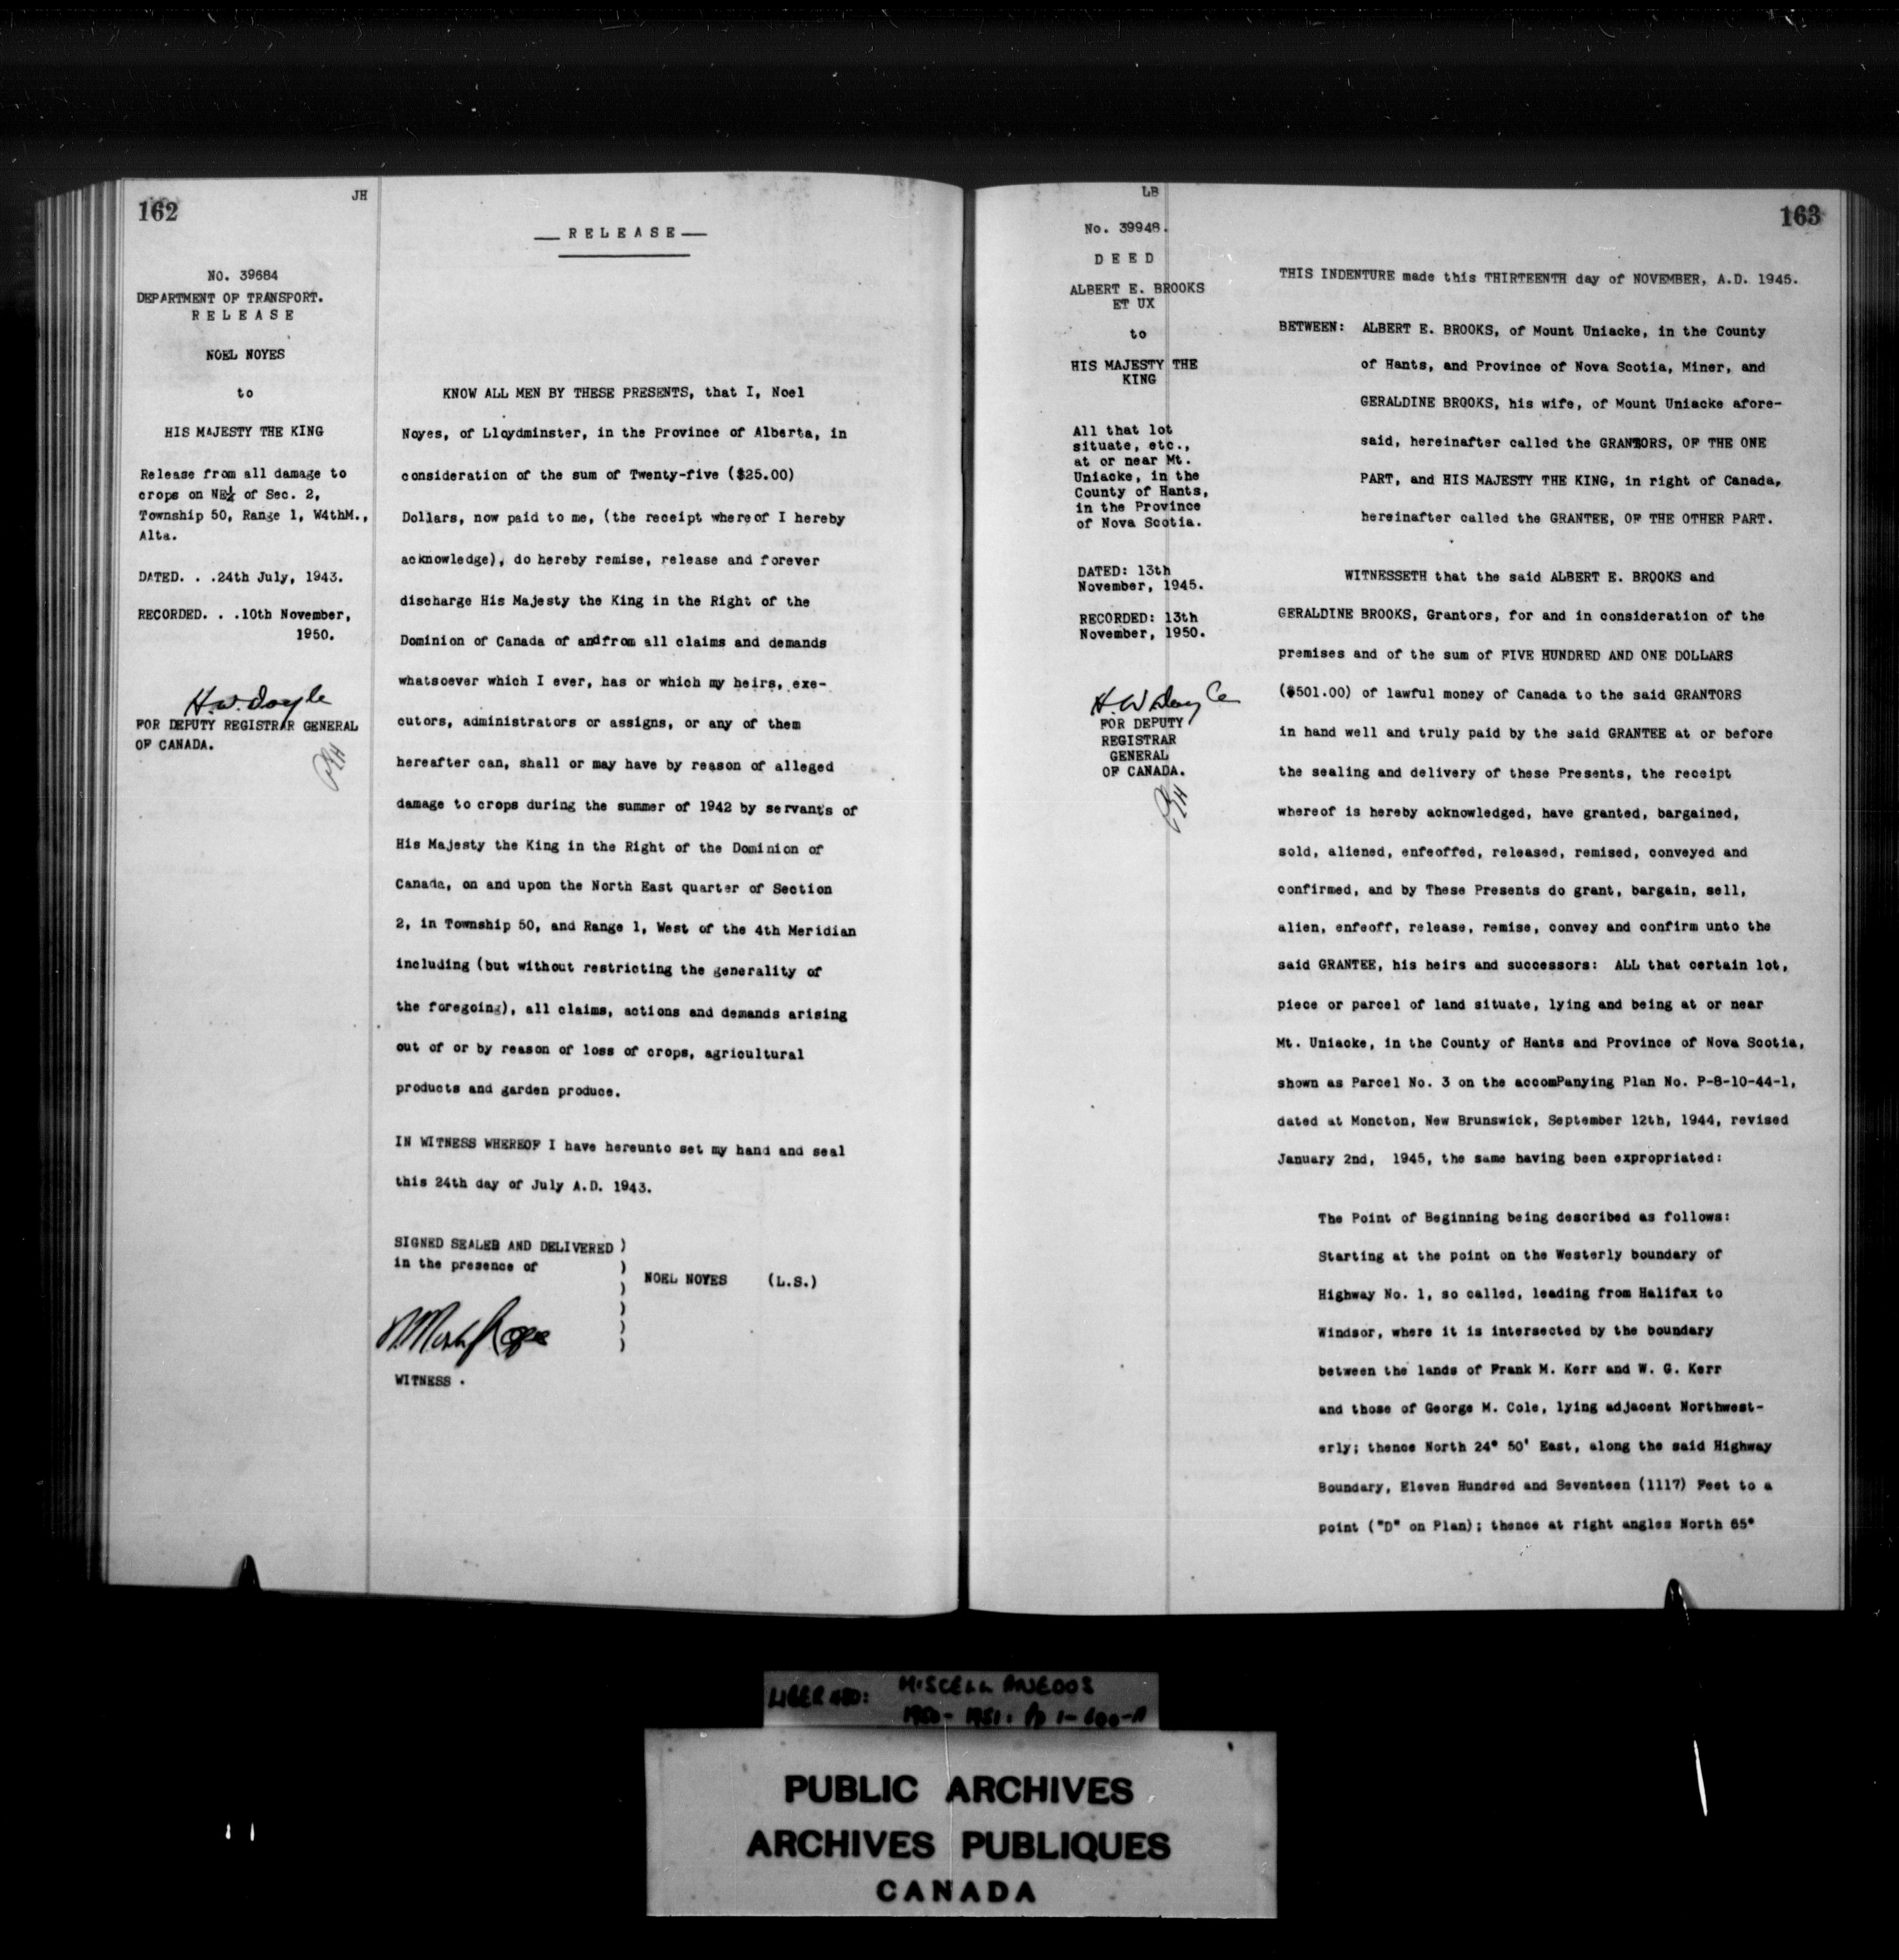 162
JH
NO. 39684
DEPARTMENT OF TRANSPORT.
RELEASE
NOEL NOYES
to
HIS MAJESTY THE KING
Release from all damage to
crops on NE¼ of Sec. 2,
Township 50, Range 1, W4thM.,
Alta.
DATED. . .24th July, 1943.
RECORDED. . .10th November,
1950.
H.W. Doyle
FOR DEPUTY REGISTRAR GENERAL
OF CANADA.
RELEASE
KNOW ALL MEN BY THESE PRESENTS, that I, Noel
Noyes, of Lloydminster, in the Province of Alberta, in
consideration of the sum of Twenty-five ($25.00)
Dollars, now paid to me, (the receipt whereof I hereby
acknowledge), do hereby remise, release and forever
discharge His Majesty the King in the Right of the
Dominion of Canada of andfrom all claims and demands
whatsoever which I ever, has or which my heirs, exe-
cutors, administrators or assigns, or any of them
hereafter can, shall or may have by reason of alleged
damage to crops during the summer of 1942 by servants of
His Majesty the King in the Right of the Dominion of
Canada, on and upon the North East quarter of Section
2, in Township 50, and Range 1, West of the 4th Meridian
including (but without restricting the generality of
the foregoing), all claims, actions and demands arising
out of or by reason of loss of crops, agricultural
products and garden produce.
IN WITNESS WHEREOF I have hereunto set my hand and seal
this 24th day of July A.D. 1943.
SIGNED SEALED AND DELIVERED )
in the presence of )
NOEL NOYES (L.S.)
WITNESS .
LB
163
No. 39948.
DEED
ALBERT E. BROOKS
ET UX
to
HIS MAJESTY THE
KING
All that lot
situate, etc.,
at or near Mt.
Uniacke, in the
County of Hants,
in the Province
of Nova Scotia.
DATED: 13th
November, 1945.
RECORDED: 13th
November, 1950.
H.W. Doyle
FOR DEPUTY
REGISTRAR
GENERAL
OF CANADA.
THIS INDENTURE made this THIRTEENTH day of NOVEMBER, A.D. 1945.
BETWEEN: ALBERT E. BROOKS, of Mount Uniacke, in the County
of Hants, and Province of Nova Scotia, Miner, and
GERALDINE BROOKS, his wife, of Mount Uniacke afore-
said, hereinafter called the GRANTORS, OF THE ONE
PART, and HIS MAJESTY THE KING, in right of Canada,
hereinafter called the GRANTEE, OF THE OTHER PART.
WITNESSETH that the said ALBERT E. BROOKS and
GERALDINE BROOKS, Grantors, for and in consideration of the
premises and of the sum of FIVE HUNDRED AND ONE DOLLARS
($501.00) of lawful money of Canada to the said GRANTORS
in hand well and truly paid by the said GRANTEE at or before
the sealing and delivery of these Presents, the receipt
whereof is hereby acknowledged, have granted, bargained,
sold, aliened, enfeoffed, released, remised, conveyed and
confirmed, and by These Presents do grant, bargain, sell,
alien, enfeoff, release, remise, convey and confirm unto the
said GRANTEE, his heirs and successors: ALL that certain lot,
piece or parcel of land situate, lying and being at or near
Mt. Uniacke, in the County of Hants and Province of Nova Scotia,
shown as Parcel No. 3 on the accomPanying Plan No. P-8-10-44-1,
dated at Moncton, New Brunswick, September 12th, 1944, revised
January 2nd, 1945, the same having been expropriated:
The Point of Beginning being described as follows:
Starting at the point on the Westerly boundary of
Highway No. 1, so called, leading from Halifax to
Windsor, where it is intersected by the boundary
between the lands of Frank M. Kerr and W. G. Kerr
and those of George M. Cole, lying adjacent Northwest-
erly; thence North 24° 50' East, along the said Highway
Boundary, Eleven Hundred and Seventeen (1117) Feet to a
point ("D" on Plan); thence at right angles North 65°
LIBER 480: MISCELLANEOUS
1950- 1951: Pp 1-600-A
PUBLIC ARCHIVES
ARCHIVES PUBLIQUES
CANADA